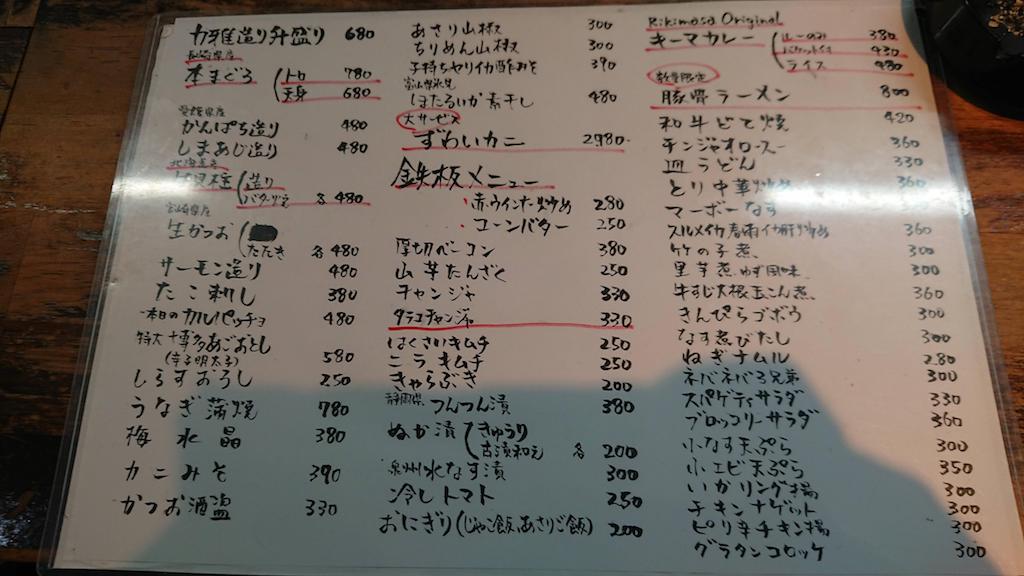 力雅造り舟盛り 680
長崎県産
本まぐろ トロ 780
天身 680
愛媛県産
かんぱち造り 480
しまあじ造り 480
北海道産
造り
バター焼き 各480
宮崎県産
生かつお
たたき 各480
サーモン造り 480
たこ刺し 380
本日のカルパッチョ 480
特大 博多あごおとし
(辛子明太子) 580
しらすおろし 250
うなぎ蒲焼 780
梅水晶 380
カニみそ 390
かつお酒盗 330
あさり山椒 300
ちりめん山椒 300
子持ちヤリイカ酢みそ 390
富山県氷見
ほたるいか素干し 480
大サービス
ずわいカニ 2980
鉄板メニュー
赤ウインナー炒め 280
コーンバター 250
厚切ベーコン 380
山芋たんざく 250
チャンジャ 330
タラコチャンジャ 330
はくさいキムチ 250
ニラキムチ 250
きゃらぶき 200
静岡県 つんつん漬 380
ぬか漬 きゅうり
古漬和え 各200
泉州水なす漬 300
冷しトマト 250
おにぎり(じゃこ飯、あさりご飯) 200
Rikimasa Original
キーマカレー ルーのみ 380
バケット付 430
ライス 480
数量限定
豚骨ラーメン 800
和牛どて焼 420
チンジャオロースー 360
皿うどん 330
とり中華炒め 360
マーボーなす
スルメイカ春雨イカ肝炒め 360
竹の子煮 300
里芋煮ゆず風味 300
牛すじ大根玉こん煮 360
きんぴらゴボウ 300
なす煮びたし 300
ねぎナムル 280
ネバネバ3兄弟 300
スパゲティサラダ 330
ブロッコリーサラダ 360
小なす天ぷら 300
小エビ天ぷら 350
いかリング揚 300
チキンナゲット 300
ピリ辛チキン揚 300
グラタンコロッケ 300